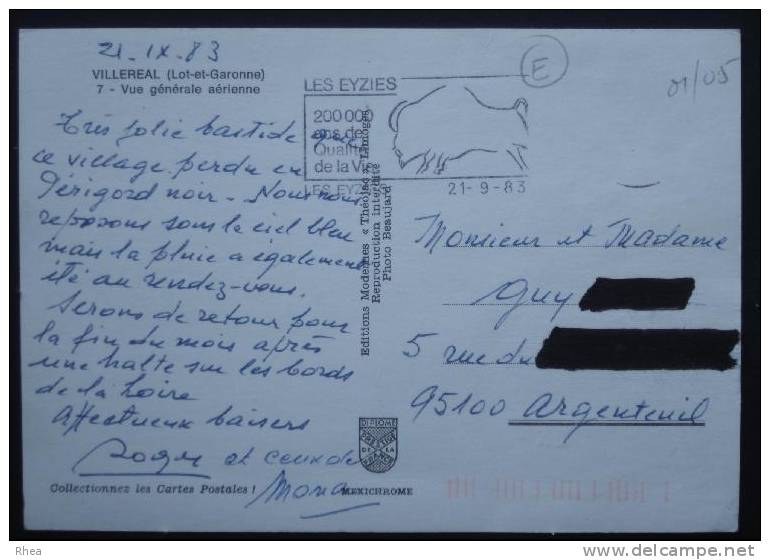 21-IX-83
VILLEREAL (Lot-et-Garonne)
7 - Vue générale aérienne
Très jolie bastide que
ce village perdu en
Périgord noir. Nous nous
reposons sous le ciel bleu
mais la pluie a également
été au rendez-vous.
Serons de retour pour
la fin du mois après
une halte sur les bords
de la Loire
Affectueux baisers
Roger et ceux de
Mona
Collectionnez les Cartes Postales !
MEXICHROME
LES EYZIES
200 000
ans de
Qualité
de la Vie
LES EYZIES
21-9-83
E
01/05
Editions Modernes « Théojac » Limoges
Reproduction interdite
Photo Beaujard
DIPLOME
PRESTIGE
DE LA
FRANCE
Monsieur et Madame
Guy
5 rue du
95100 Argenteuil
Rhea
www.delcampe.net